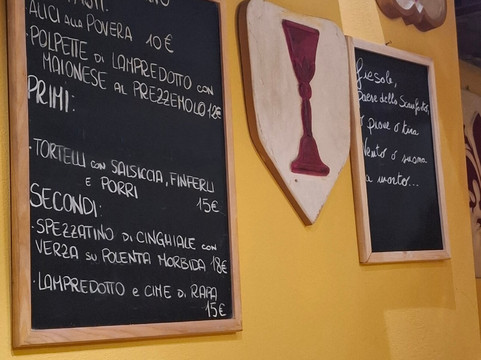 ALICI ALLA POVERA 10€
·POLPETTE di LAMPREDOTTO con
MAIONESE AL PREZZEMOLO 12€
PRIMI:
·TORTELLI con SALSICCIA, FINFERLI
E PORRI 15€
SECONDI:
·SPEZZATINO di CINGHIALE con
VERZA su POLENTA MORBIDA 18€
·LAMPREDOTTO e CIME di RAPA
15€
Fiesole,
Paese dello Sconforto,
o piove o tira
vento o suona
a morto...